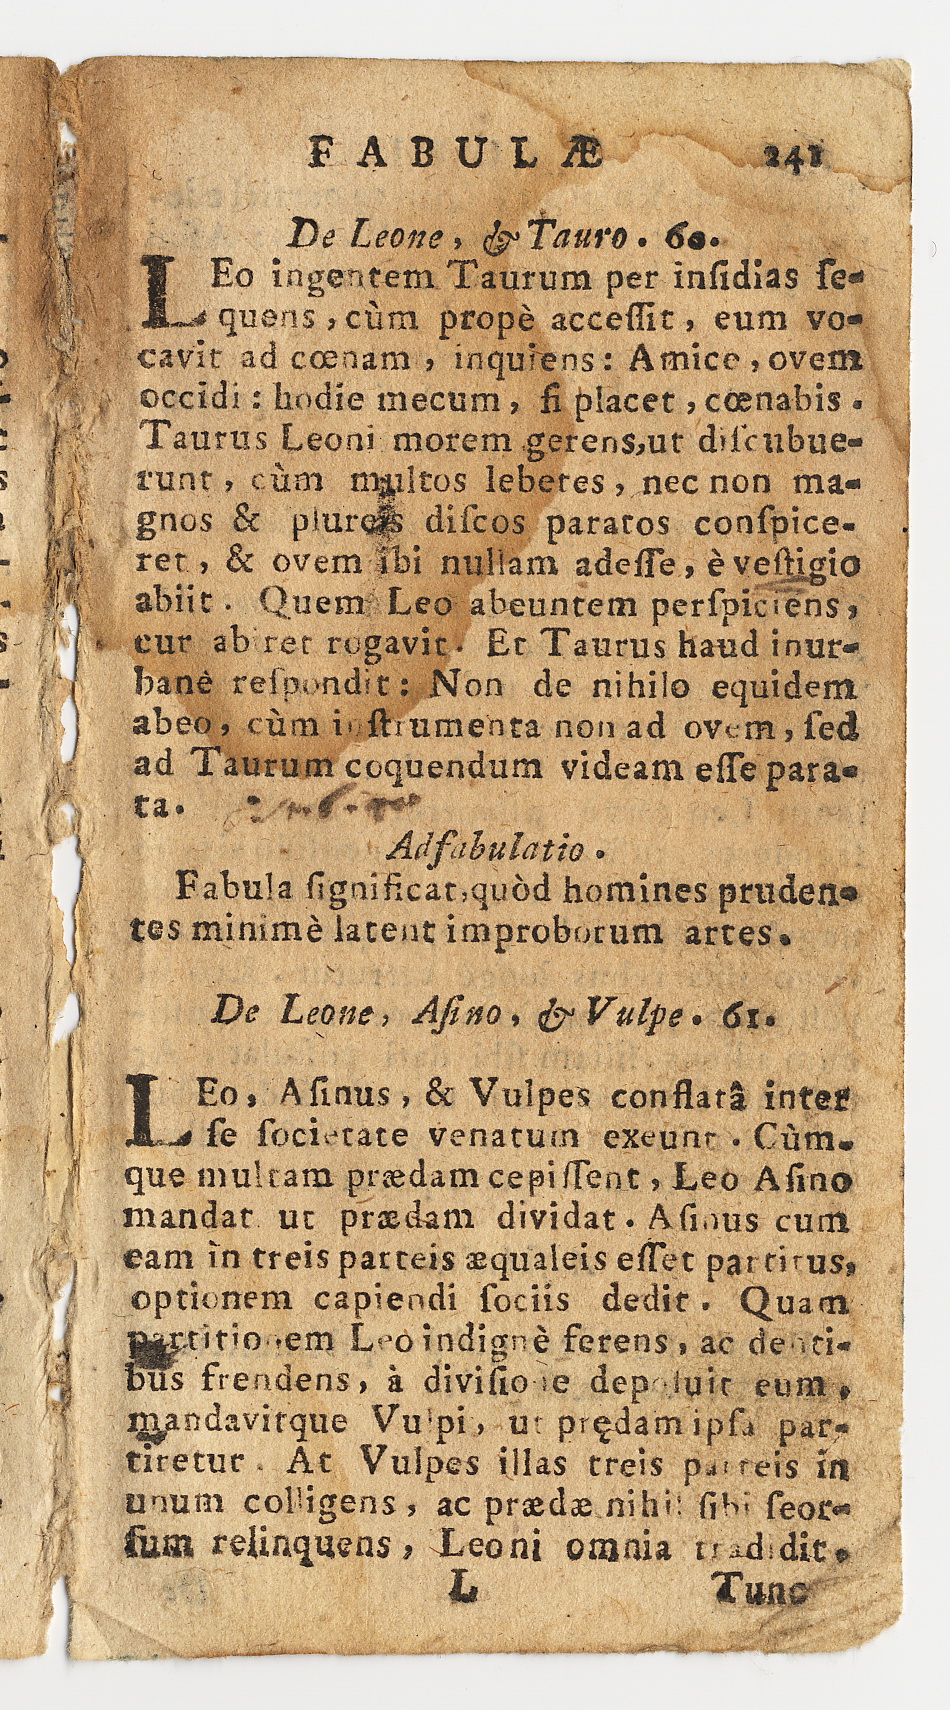 FABULÆ 241
De Leone, & Tauro. 60.
LEo ingentem Taurum per inſidias ſe-
quens, cùm propè acceſſit, eum vo-
cavit ad cœnam, inquiens: Amice, ovem
occidi: hodie mecum, ſi placet, cœnabis.
Taurus Leoni morem gerens, ut diſcubue-
runt, cùm multos lebetes, nec non ma-
gnos & plureis diſcos paratos conſpice-
ret, & ovem ibi nullam adeſſe, è veſtigio
abiit. Quem Leo abeuntem perſpiciens,
cur abiret rogavit. Et Taurus haud inur-
banè reſpondit: Non de nihilo equidem
abeo, cùm inſtrumenta non ad ovem, ſed
ad Taurum coquendum videam eſſe para-
ta.
Adfabulatio.
Fabula ſignificat, quòd homines pruden-
tes minimè latent improborum artes.
De Leone, Aſino, & Vulpe. 61.
LEo, Aſinus, & Vulpes conflatâ inter
ſe ſocietate venatum exeunt. Cùm-
que multam prædam cepiſſent, Leo Aſino
mandat ut prædam dividat. Aſinus cum
eam in treis parteis æqualeis eſſet partitus,
optionem capiendi ſociis dedit. Quam
partitionem Leo indignè ferens, ac denti-
bus frendens, à diviſione depoſuit eum,
mandavitque Vulpi, ut prędam ipſa par-
tiretur. At Vulpes illas treis parteis in
unum colligens, ac prædæ nihil ſibi ſeor-
ſum relinquens, Leoni omnia tradidit.
L Tunc